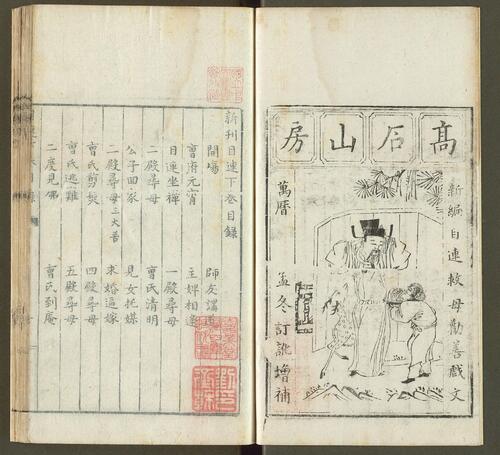 髙石山房
新編目連救母勸善戲文
萬曆
孟冬訂訛增補
新刊目連下卷目錄
開場 師友講道
曹府元宵 主婢相逢
目連坐禪 一殿尋母
二殿尋母 曹氏清明
公子回家 見女托媒
三殿尋母三大苦 求婚逼嫁
曹氏剪髮 四殿尋母
曹氏逃難 五殿尋母
二度見佛 曹氏到庵